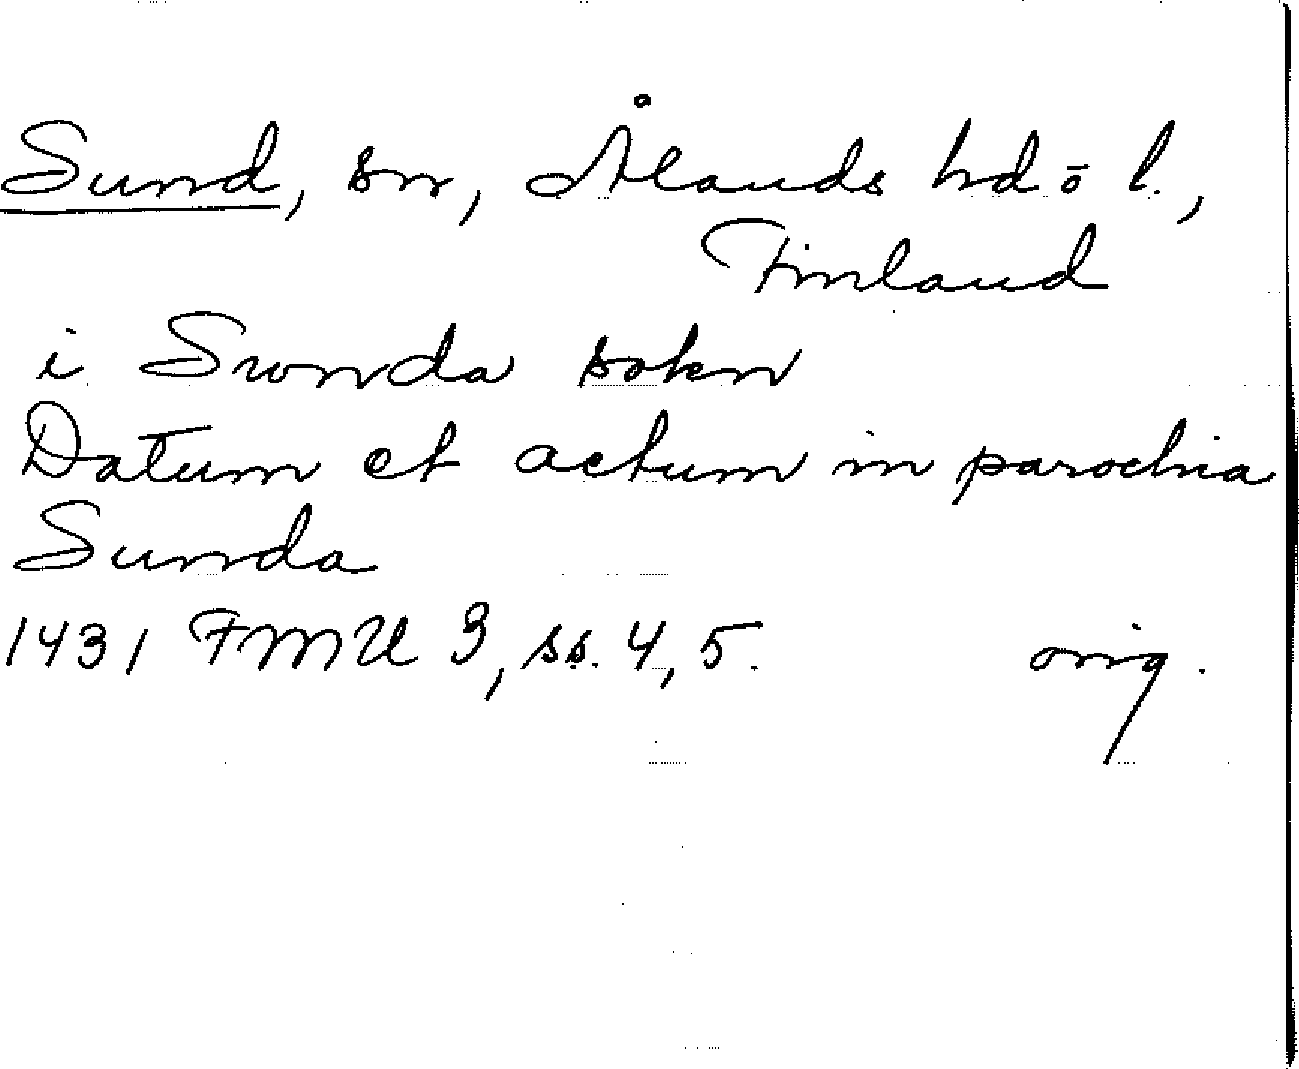 Sund, sn, Ålands hd o l.,
Finland
i Swnda sokn
Datum et actum in parochia
Sunda
1431 FMU 3, ss. 4, 5. orig.